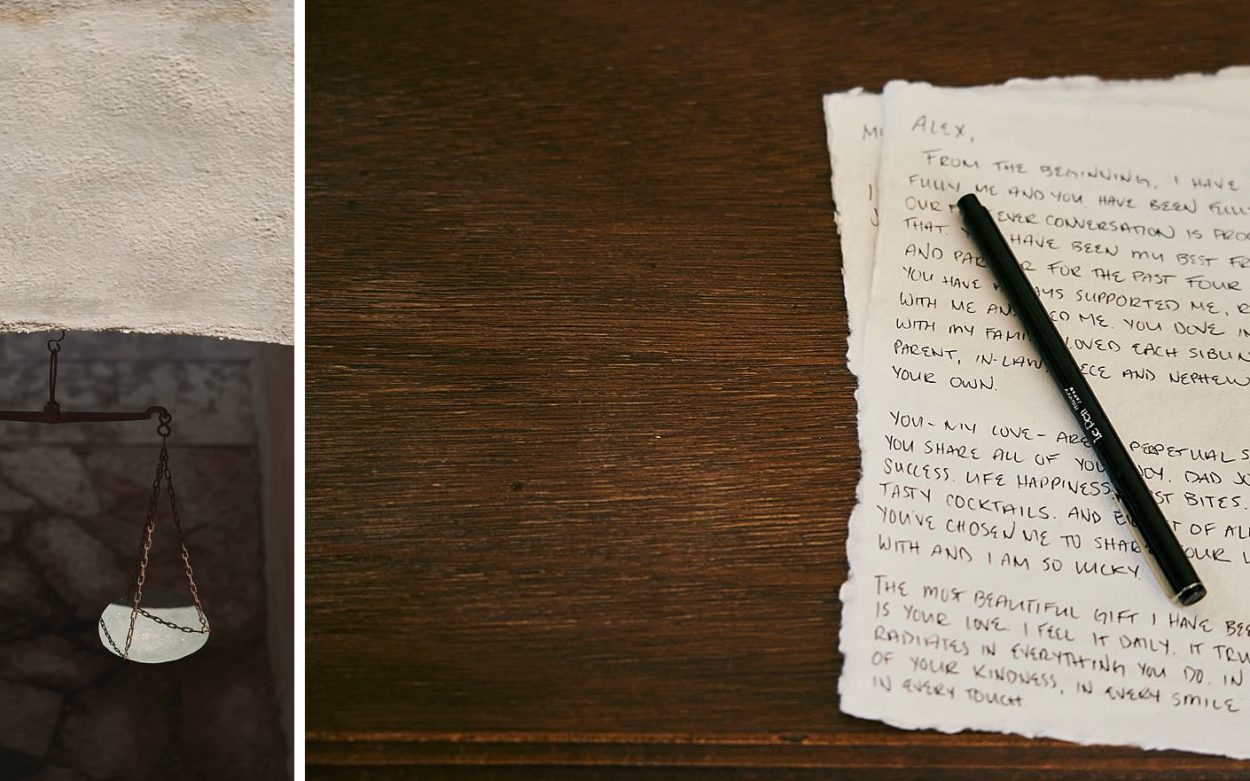 ALEX,
FROM THE BEGINNING, I HAVE
FULLY ME AND YOU HAVE BEEN FULLY
OUR EVER CONVERSATION IS
THAT HAVE BEEN MY BEST
AND FOR THE PAST FOUR
YOU HAVE SUPPORTED ME,
WITH ME ME. YOU DOVE
WITH MY LOVED EACH
PARENT, IN-LAW, AND NEPHEW
YOUR OWN.
YOU - MY LOVE - ARE PERPETUAL
YOU SHARE ALL OF DAD
SUCCESS. LIFE HAPPINESS. BITES.
TASTY COCKTAILS. AND OF
YOU'VE CHOSEN ME TO YOUR
WITH AND I AM SO LUCKY.
THE MOST BEAUTIFUL GIFT I HAVE
IS YOUR LOVE. I FEEL IT DAILY. IT
RADIATES IN EVERYTHING YOU DO. IN
OF YOUR KINDNESS, IN EVERY SMILE
IN EVERY TOUCH.
Le Pen
JAPAN